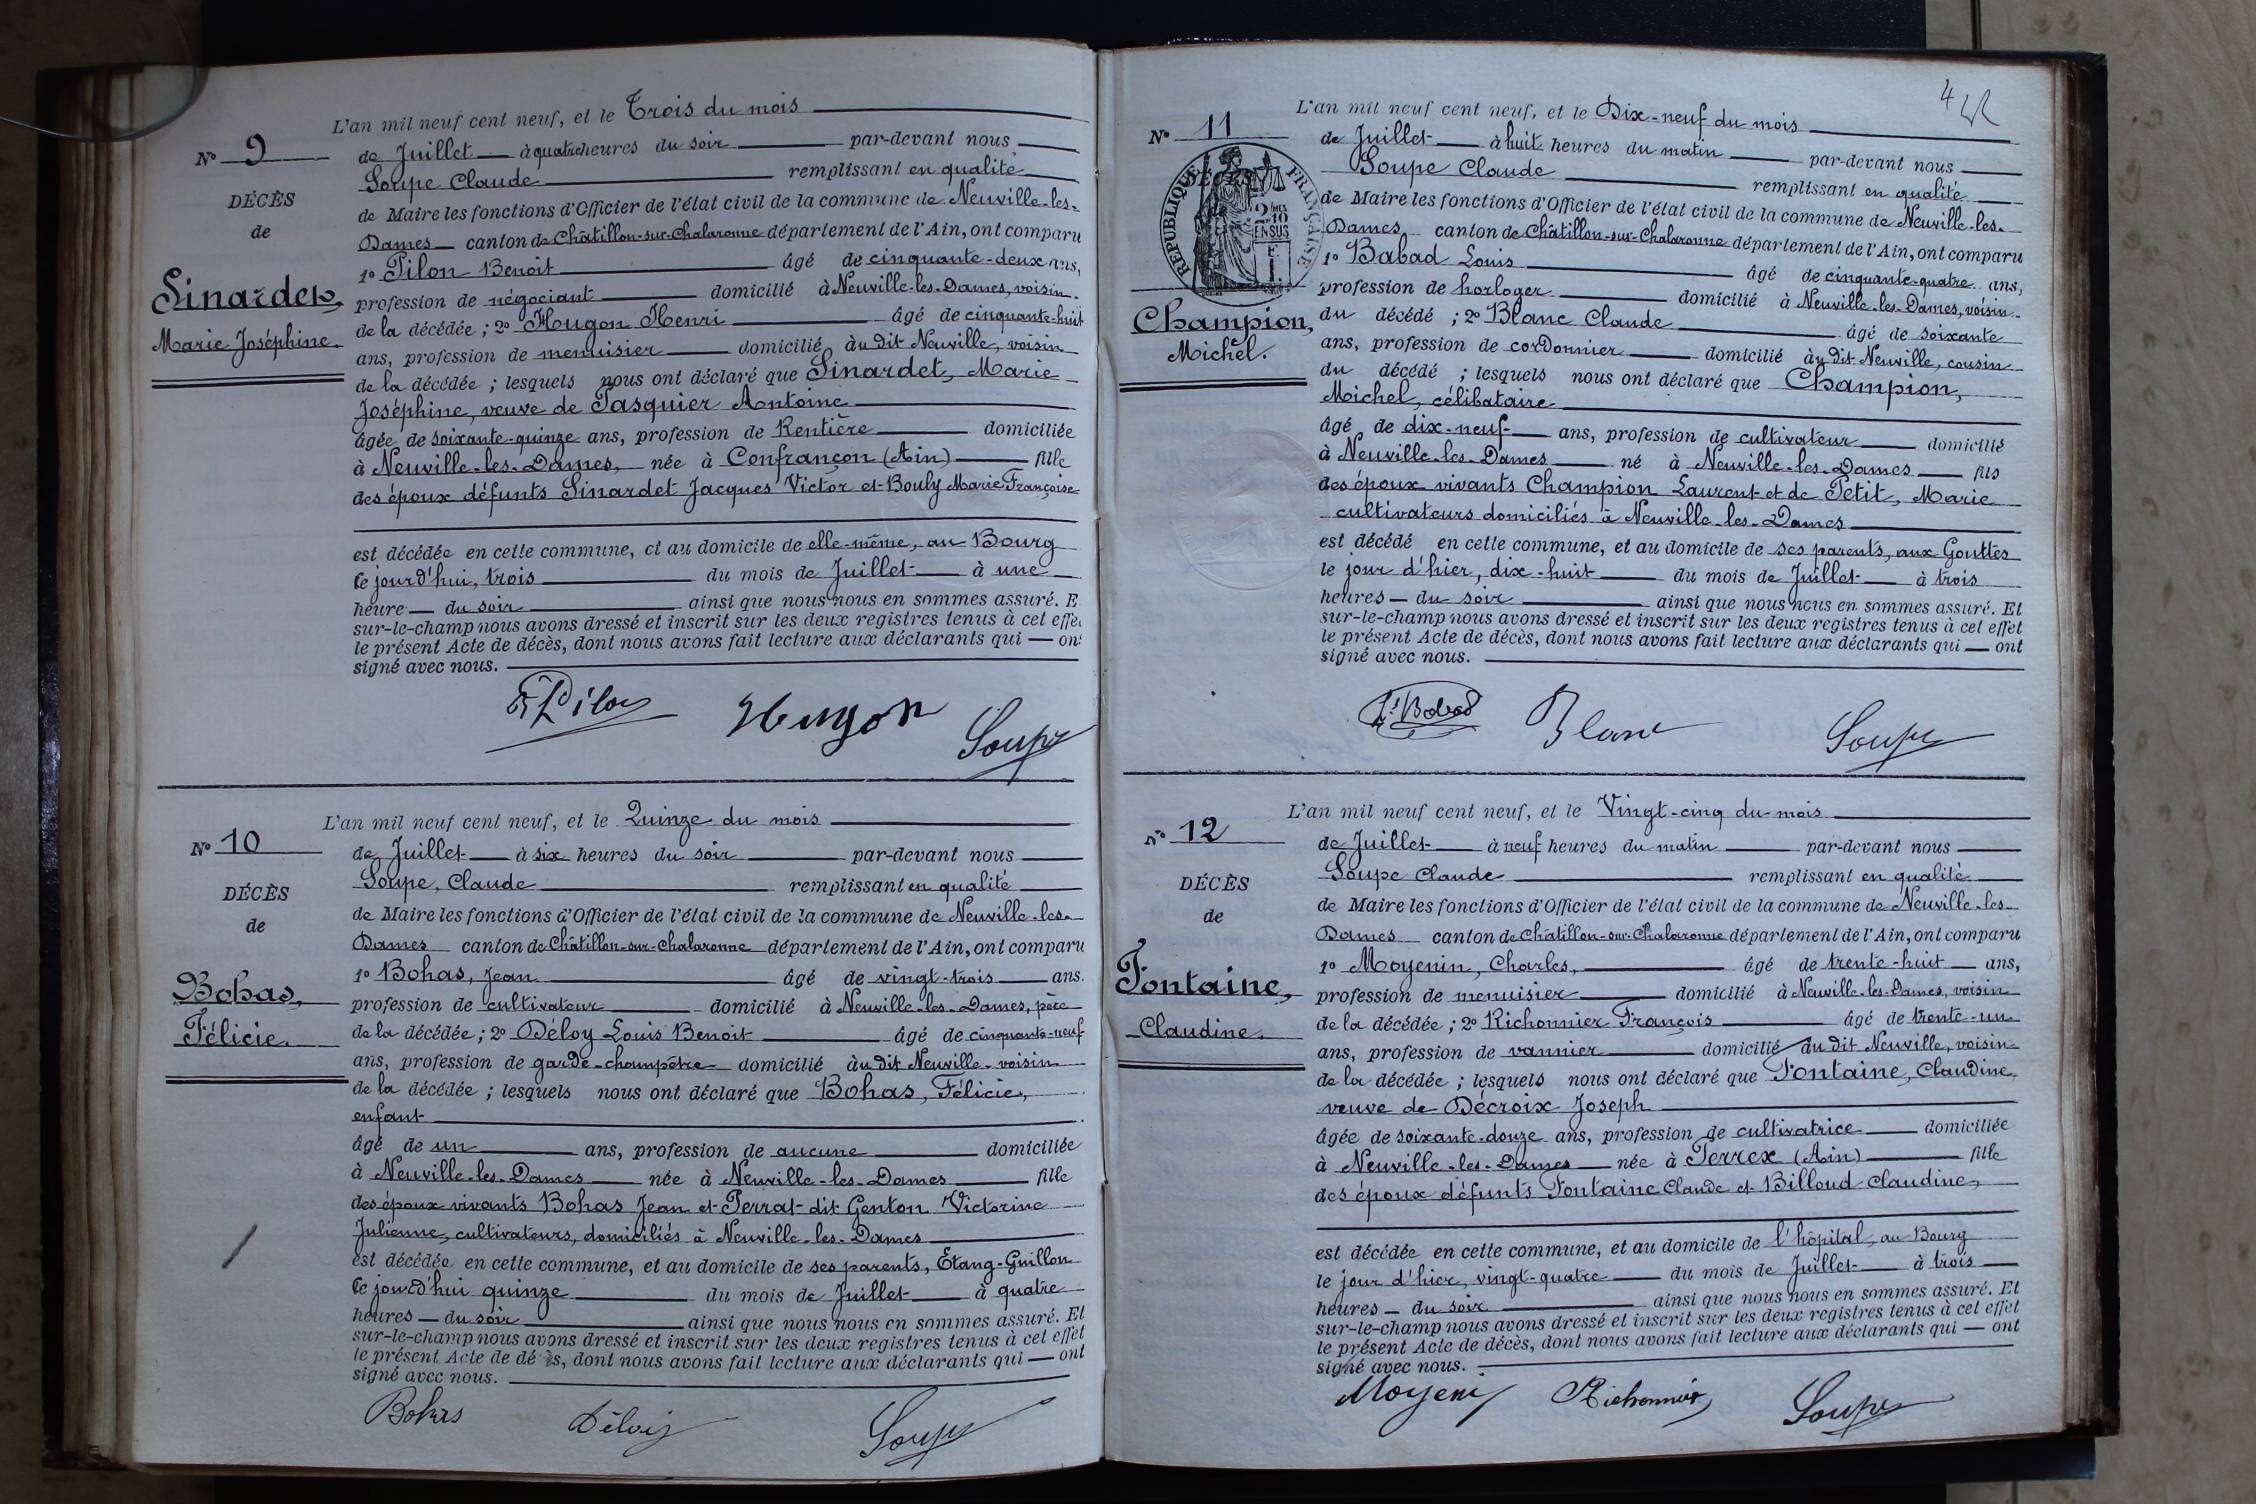 L'an mil neuf cent neuf, et le Trois du mois
N° 9
de Juillet à quatre heures du soir par-devant nous
Soupe Claude remplissant en qualité
DÉCÈS
de Maire les fonctions d'Officier de l'état civil de la commune de Neuville-les-
de
Dames canton de Châtillon-sur-Chalaronne département de l'Ain, ont comparu
1° Pilon Benoit âgé de cinquante-deux ans,
Sinardet,
profession de négociant domicilié à Neuville-les-Dames, voisin
de la décédée ; 2° Hugon Henri âgé de cinquante-huit
Marie Joséphine.
ans, profession de menuisier domicilié au dit Neuville, voisin
de la décédée ; lesquels nous ont déclaré que Sinardet, Marie
Joséphine, veuve de Pasquier Antoine
âgée de soixante-quinze ans, profession de Rentière domiciliée
à Neuville-les-Dames, née à Confrançon (Ain) fille
des époux défunts Sinardet Jacques Victor et Bouly Marie Françoise
est décédée en cette commune, et au domicile de elle-même, au Bourg
ce jourd'hui, trois du mois de Juillet à une
heure du soir ainsi que nous nous en sommes assuré. E
sur-le-champ nous avons dressé et inscrit sur les deux registres tenus à cet effe
le présent Acte de décès, dont nous avons fait lecture aux déclarants qui ont
signé avec nous.
Pilon Hugon Soupe
L'an mil neuf cent neuf, et le Quinze du mois
N° 10
de Juillet à six heures du soir par-devant nous
Soupe, Claude remplissant en qualité
DÉCÈS
de Maire les fonctions d'Officier de l'état civil de la commune de Neuville-les-
de
Dames canton de Châtillon-sur-Chalaronne département de l'Ain, ont comparu
1° Bohas, Jean âgé de vingt-trois ans.
Bohas,
profession de cultivateur domicilié à Neuville-les-Dames, père
de la décédée ; 2° Déloy Louis Benoit âgé de cinquante-neuf
Félicie.
ans, profession de garde-champêtre domicilié au dit Neuville-voisin
de la décédée ; lesquels nous ont déclaré que Bohas, Félicie,
enfant
âgé de un ans, profession de aucune domiciliée
à Neuville-les-Dames née à Neuville-les-Dames fille
des époux vivants Bohas Jean et Perrat dit Genton Victorine
Julienne, cultivateurs, domiciliés à Neuville-les-Dames
est décédée en cette commune, et au domicile de ses parents, Etang-Guillon
ce jourd'hui quinze du mois de Juillet à quatre
heures du soir ainsi que nous nous en sommes assuré. Et
sur-le-champ nous avons dressé et inscrit sur les deux registres tenus à cet effet
le présent Acte de décès, dont nous avons fait lecture aux déclarants qui ont
signé avec nous.
Bohas Déloy Soupe
4
L'an mil neuf cent neuf, et le Dix-neuf du mois
N° 11
de Juillet à huit heures du matin par-devant nous
Soupe Claude remplissant en qualité
RÉPUBLIQUE FRANÇAISE
2/MES 10 EN SUS
de Maire les fonctions d'Officier de l'état civil de la commune de Neuville-les-
Dames canton de Châtillon-sur-Chalaronne département de l'Ain, ont comparu
1° Babad Louis âgé de cinquante-quatre ans,
profession de horloger domicilié à Neuville-les-Dames, voisin
Champion,
du décédé ; 2° Blanc Claude âgé de soixante
Michel.
ans, profession de cordonnier domicilié au dit Neuville, cousin
du décédé ; lesquels nous ont déclaré que Champion,
Michel, célibataire
âgé de dix-neuf ans, profession de cultivateur domicilié
à Neuville-les-Dames né à Neuville-les-Dames fils
des époux vivants Champion Laurent et de Petit, Marie
cultivateurs domiciliés à Neuville-les-Dames
est décédé en cette commune, et au domicile de ses parents, aux Gouttes
le jour d'hier, dix-huit du mois de Juillet à trois
heures du soir ainsi que nous nous en sommes assuré. Et
sur-le-champ nous avons dressé et inscrit sur les deux registres tenus à cet effet
le présent Acte de décès, dont nous avons fait lecture aux déclarants qui ont
signé avec nous.
Ls Babad Blanc Soupe
L'an mil neuf cent neuf, et le Vingt-cinq du mois
N° 12
de Juillet à neuf heures du matin par-devant nous
Soupe Claude remplissant en qualité
DÉCÈS
de Maire les fonctions d'Officier de l'état civil de la commune de Neuville-les-
de
Dames canton de Châtillon-sur-Chalaronne département de l'Ain, ont comparu
1° Moyenin, Charles, âgé de trente-huit ans,
Fontaine,
profession de menuisier domicilié à Neuville-les-Dames, voisin
de la décédée ; 2° Richonnier François âgé de trente-un
Claudine.
ans, profession de vannier domicilié au dit Neuville, voisin
de la décédée ; lesquels nous ont déclaré que Fontaine, Claudine,
veuve de Décroix Joseph
âgée de soixante-douze ans, profession de cultivatrice domiciliée
à Neuville-les-Dames née à Perrex (Ain) fille
des époux défunts Fontaine Claude et Billoud Claudine,
est décédée en cette commune, et au domicile de l'hôpital, au Bourg
le jour d'hier, vingt-quatre du mois de Juillet à trois
heures du soir ainsi que nous nous en sommes assuré. Et
sur-le-champ nous avons dressé et inscrit sur les deux registres tenus à cet effet
le présent Acte de décès, dont nous avons fait lecture aux déclarants qui ont
signé avec nous.
Moyeni Richonnier Soupe